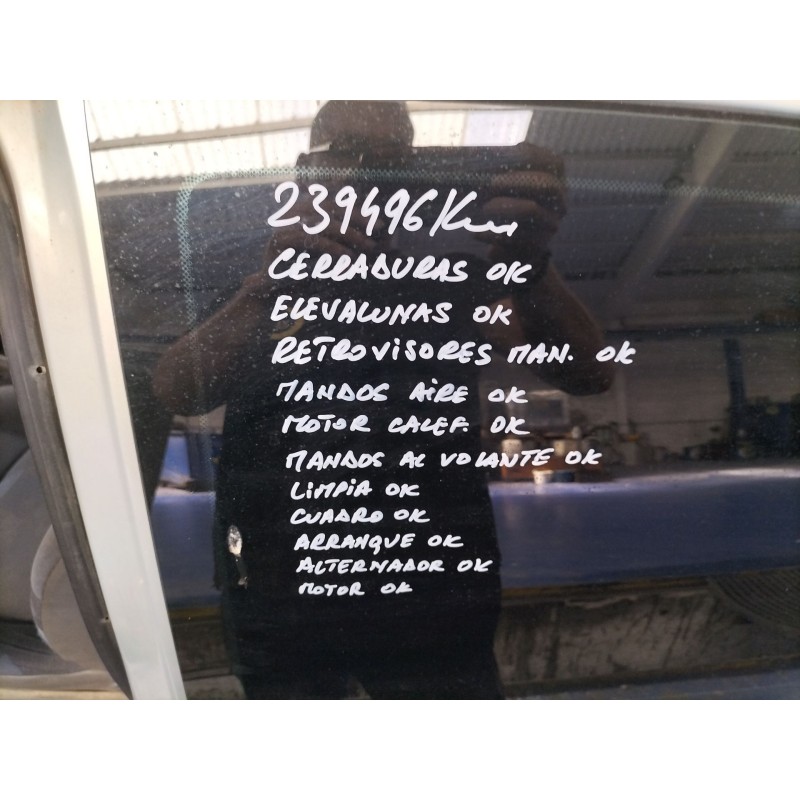 239496 Km
CERRADURAS OK
ELEVALUNAS OK
RETROVISORES MAN. OK
MANDOS AIRE OK
MOTOR CALEF. OK
MANDOS AL VOLANTE OK
LIMPIA OK
CUADRO OK
ARRANQUE OK
ALTERNADOR OK
MOTOR OK